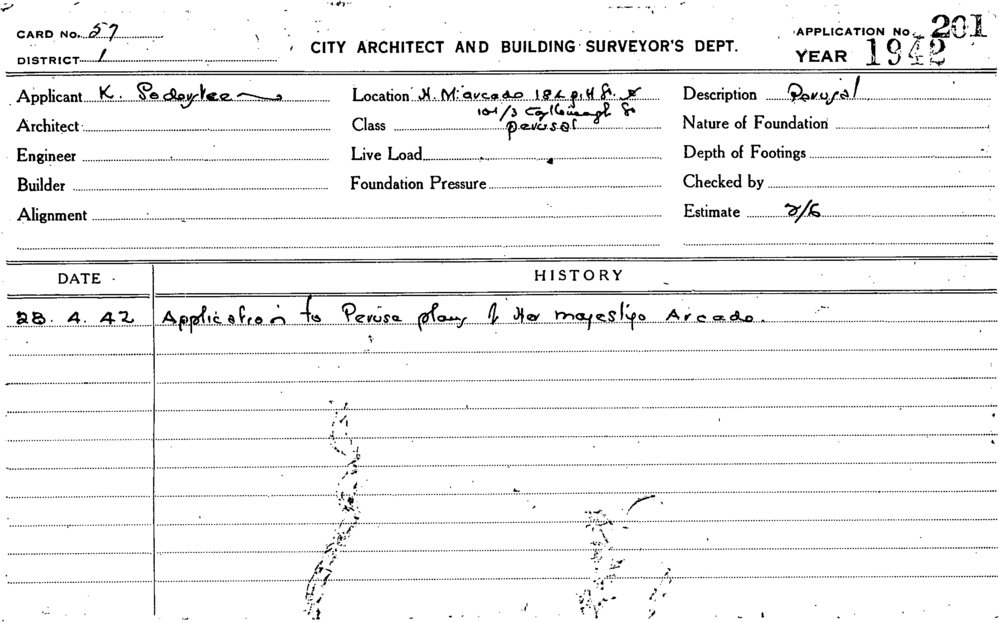 CARD No. 57
DISTRICT 1
CITY ARCHITECT AND BUILDING SURVEYOR'S DEPT.
APPLICATION No. 201
YEAR 1942
Applicant K.
Location H. M. arcade 182 Pitt St. &
Description Perusal
Architect
Class perusal
Nature of Foundation
Engineer
Live Load
Depth of Footings
Builder
Foundation Pressure
Checked by
Alignment
Estimate 2/6
DATE
HISTORY
28. 4. 42 Application to Peruse plans of Her majestys Arcade.